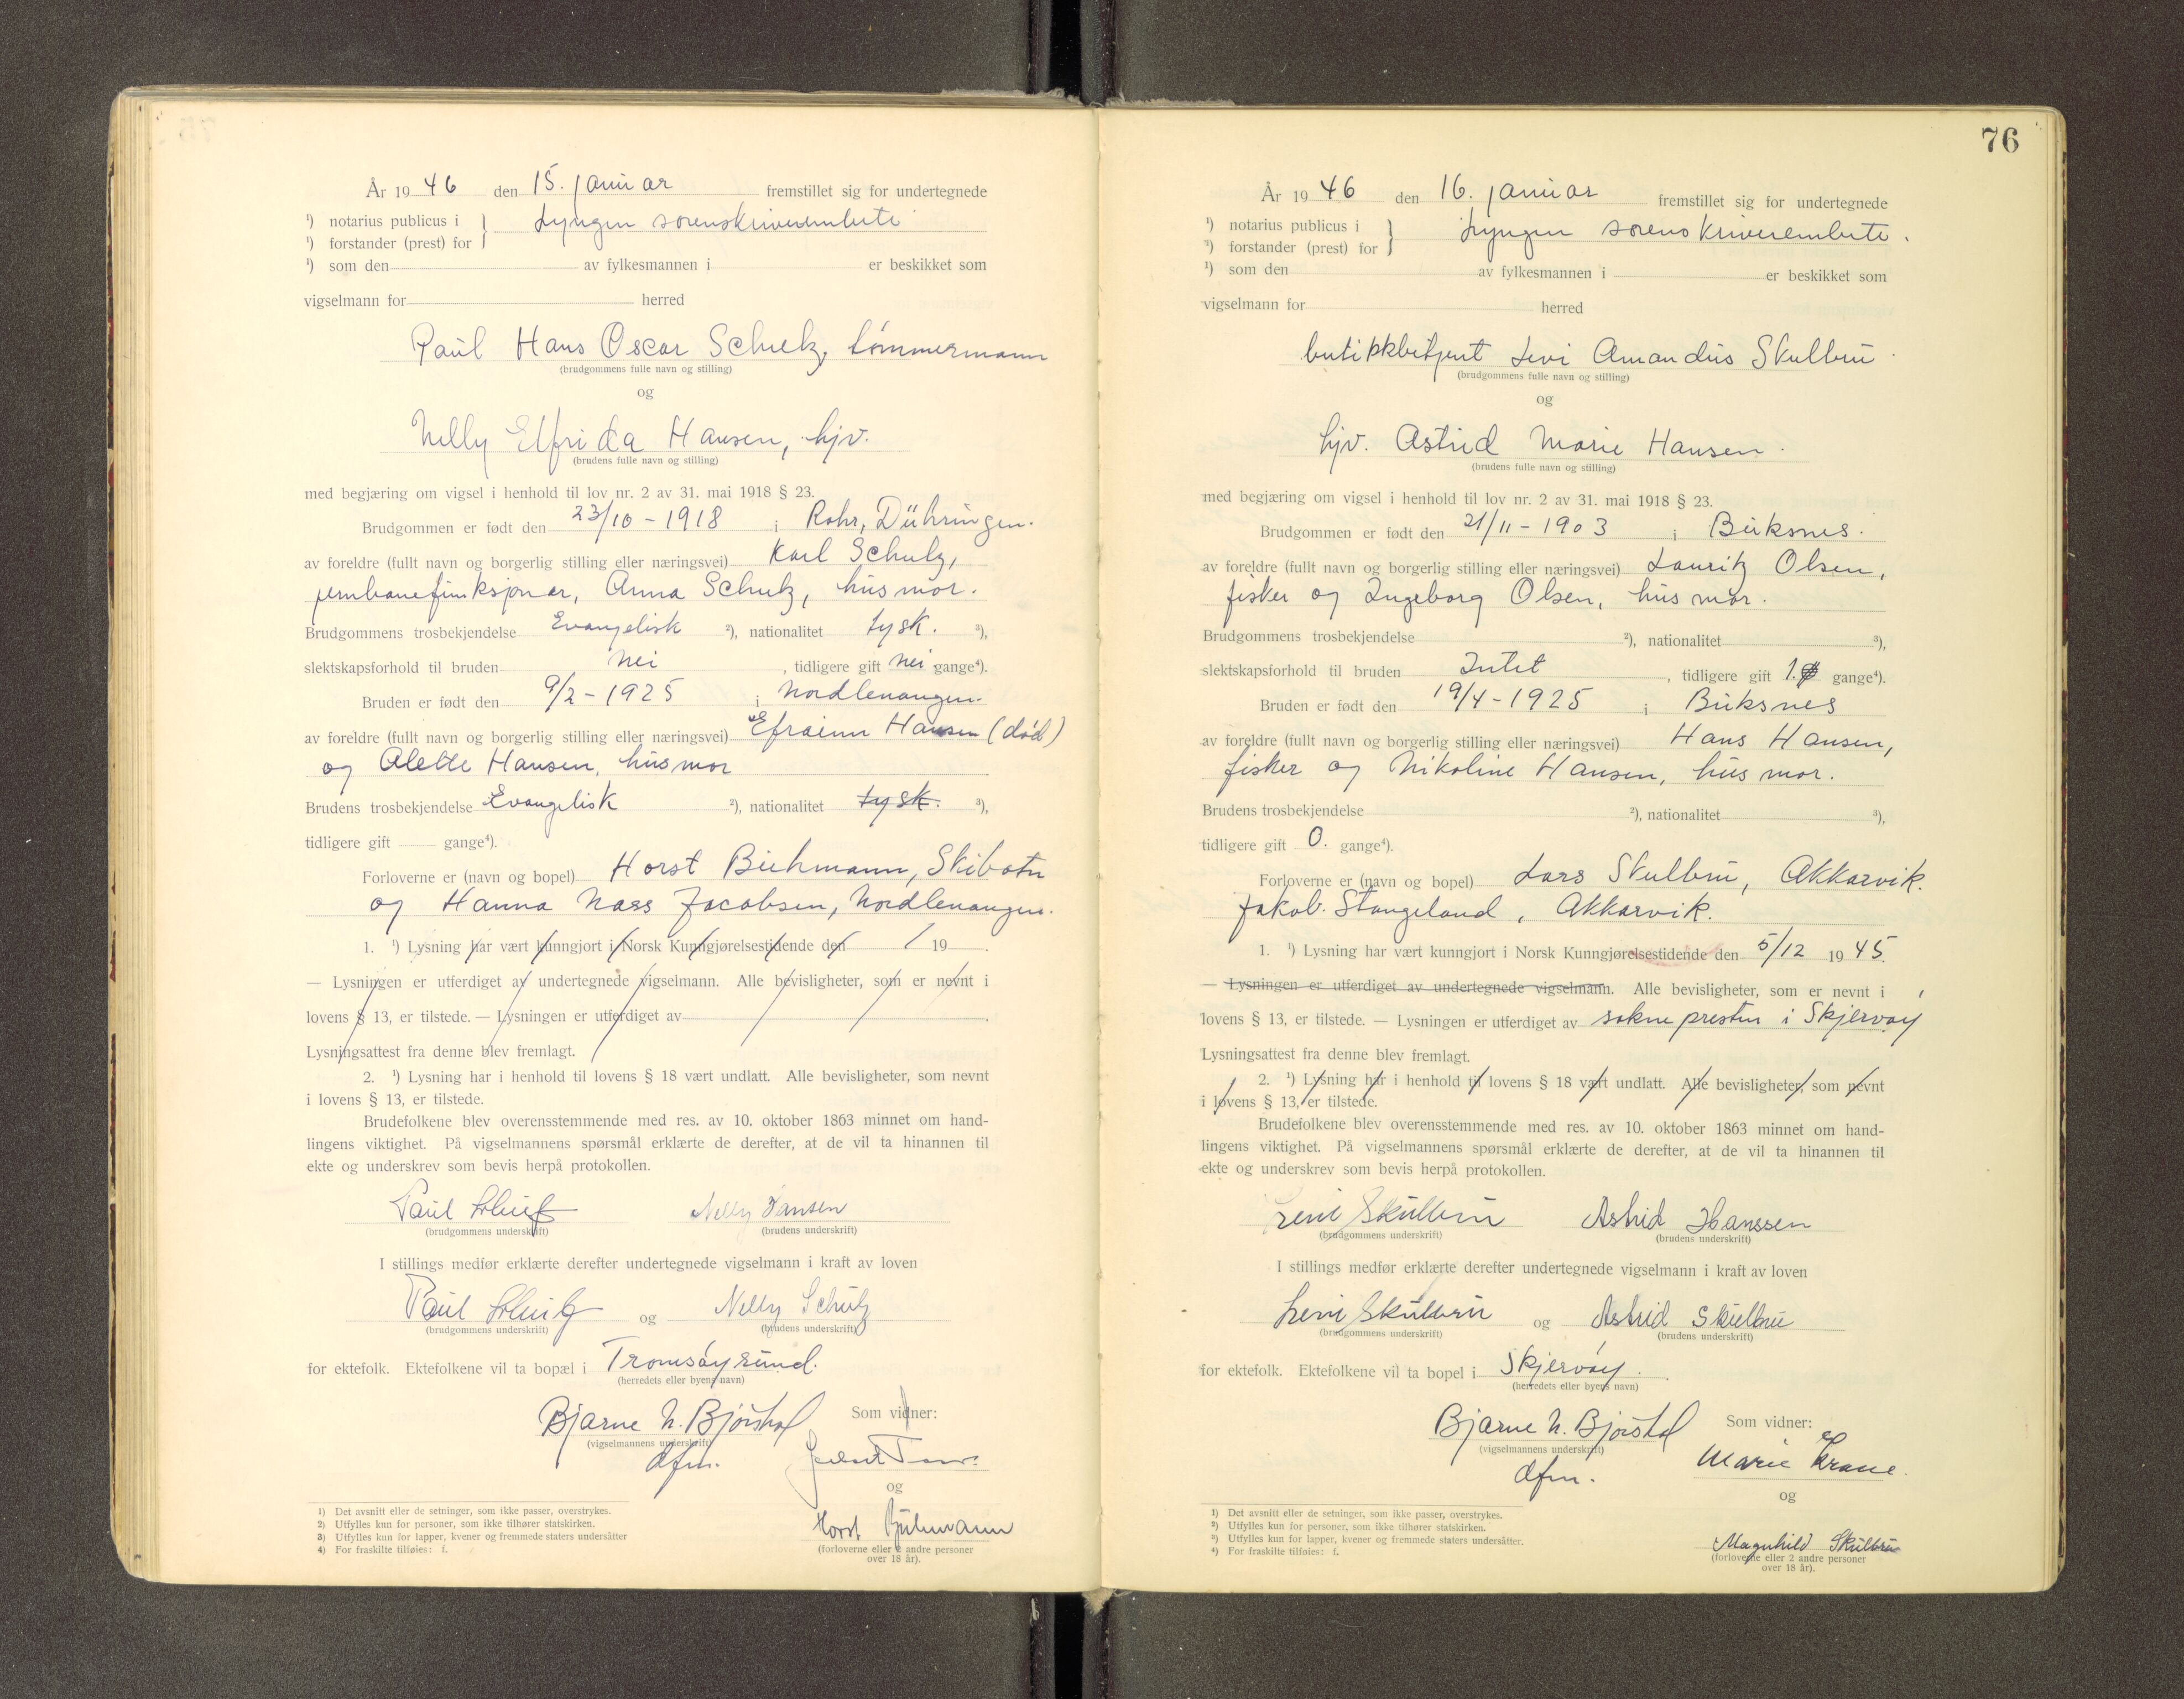 År 19 46 den 15. januar fremstillet sig for undertegnede
¹) notarius publicus i } Lyngen sorenskriverembete
¹) forstander (prest) for
¹) som den av fylkesmannen i er beskikket som
vigselmann for herred
Paul Hans Oscar Schulz, tømmermann
(brudgommens fulle navn og stilling)
og
Nelly Elfrida Hansen, hjv.
(brudens fulle navn og stilling)
med begjæring om vigsel i henhold til lov nr. 2 av 31. mai 1918 § 23.
Brudgommen er født den 23/10 - 1918 i Rohr, Dühringen.
av foreldre (fullt navn og borgerlig stilling eller næringsvei) Karl Schulz,
jernbanefunksjonær, Anna Schulz, husmor.
Brudgommens trosbekjendelse Evangelisk ²), nationalitet tysk. ³),
slektskapsforhold til bruden nei , tidligere gift nei gange⁴).
Bruden er født den 9/2 - 1925 i Nordlenangen.
av foreldre (fullt navn og borgerlig stilling eller næringsvei) Efraim Hansen (død)
og Alette Hansen, husmor
Brudens trosbekjendelse Evangelisk ²), nationalitet tysk. ³),
tidligere gift gange⁴).
Forloverne er (navn og bopel) Horst Buhmann, Skibotn
og Hanna Nass Jacobsen, Nordlenangen.
1. ¹) Lysning har vært kunngjort i Norsk Kunngjørelsestidende den / 19 .
— Lysningen er utferdiget av undertegnede vigselmann. Alle bevisligheter, som er nevnt i
lovens § 13, er tilstede. — Lysningen er utferdiget av .
Lysningsattest fra denne blev fremlagt.
2. ¹) Lysning har i henhold til lovens § 18 vært undlatt. Alle bevisligheter, som nevnt
i lovens § 13, er tilstede.
Brudefolkene blev overensstemmende med res. av 10. oktober 1863 minnet om hand-
lingens viktighet. På vigselmannens spørsmål erklærte de derefter, at de vil ta hinannen til
ekte og underskrev som bevis herpå protokollen.
Paul Schulz Nelly Hansen
(brudgommens underskrift) (brudens underskrift)
I stillings medfør erklærte derefter undertegnede vigselmann i kraft av loven
Paul Schulz og Nelly Schulz
(brudgommens underskrift) (brudens underskrift)
for ektefolk. Ektefolkene vil ta bopæl i Tromsøysund.
(herredets eller byens navn)
Bjarne N. Bjørstad Som vidner:
(vigselmannens underskrift)
dfm.
og
Horst Buhmann
(forloverne eller 2 andre personer
over 18 år).
1) Det avsnitt eller de setninger, som ikke passer, overstrykes.
2) Utfylles kun for personer, som ikke tilhører statskirken.
3) Utfylles kun for lapper, kvener og fremmede staters undersåtter
4) For fraskilte tilføies: f.
76
År 19 46 den 16. januar fremstillet sig for undertegnede
¹) notarius publicus i } Lyngen sorenskriverembete.
¹) forstander (prest) for
¹) som den av fylkesmannen i er beskikket som
vigselmann for herred
butikkbetjent Levi Amandus Skulbru
(brudgommens fulle navn og stilling)
og
hjv. Astrid Marie Hansen.
(brudens fulle navn og stilling)
med begjæring om vigsel i henhold til lov nr. 2 av 31. mai 1918 § 23.
Brudgommen er født den 21/11 - 1903 i Buksnes.
av foreldre (fullt navn og borgerlig stilling eller næringsvei) Lauritz Olsen,
fisker og Ingeborg Olsen, husmor.
Brudgommens trosbekjendelse ²), nationalitet ³),
slektskapsforhold til bruden Intet , tidligere gift 1. gange⁴).
Bruden er født den 19/4 - 1925 i Buksnes
av foreldre (fullt navn og borgerlig stilling eller næringsvei) Hans Hansen,
fisker og Nikoline Hansen, husmor.
Brudens trosbekjendelse ²), nationalitet ³),
tidligere gift 0. gange⁴).
Forloverne er (navn og bopel) Lars Skulbru, Akkarvik.
Jakob Stangeland, Akkarvik.
1. ¹) Lysning har vært kunngjort i Norsk Kunngjørelsestidende den 5/12 19 45.
— Lysningen er utferdiget av undertegnede vigselmann. Alle bevisligheter, som er nevnt i
lovens § 13, er tilstede. — Lysningen er utferdiget av soknepresten i Skjervøy
Lysningsattest fra denne blev fremlagt.
2. ¹) Lysning har i henhold til lovens § 18 vært undlatt. Alle bevisligheter, som nevnt
i lovens § 13, er tilstede.
Brudefolkene blev overensstemmende med res. av 10. oktober 1863 minnet om hand-
lingens viktighet. På vigselmannens spørsmål erklærte de derefter, at de vil ta hinannen til
ekte og underskrev som bevis herpå protokollen.
Levi Skulbru Astrid Hanssen
(brudgommens underskrift) (brudens underskrift)
I stillings medfør erklærte derefter undertegnede vigselmann i kraft av loven
Levi Skulbru og Astrid Skulbru
(brudgommens underskrift) (brudens underskrift)
for ektefolk. Ektefolkene vil ta bopel i Skjervøy.
(herredets eller byens navn)
Bjarne N. Bjørstad Som vidner:
(vigselmannens underskrift)
dfm.
Marie Krane.
og
Magnhild Skulbru
(forloverne eller 2 andre personer
over 18 år).
1) Det avsnitt eller de setninger, som ikke passer, overstrykes.
2) Utfylles kun for personer, som ikke tilhører statskirken.
3) Utfylles kun for lapper, kvener og fremmede staters undersåtter.
4) For fraskilte tilføies: f.